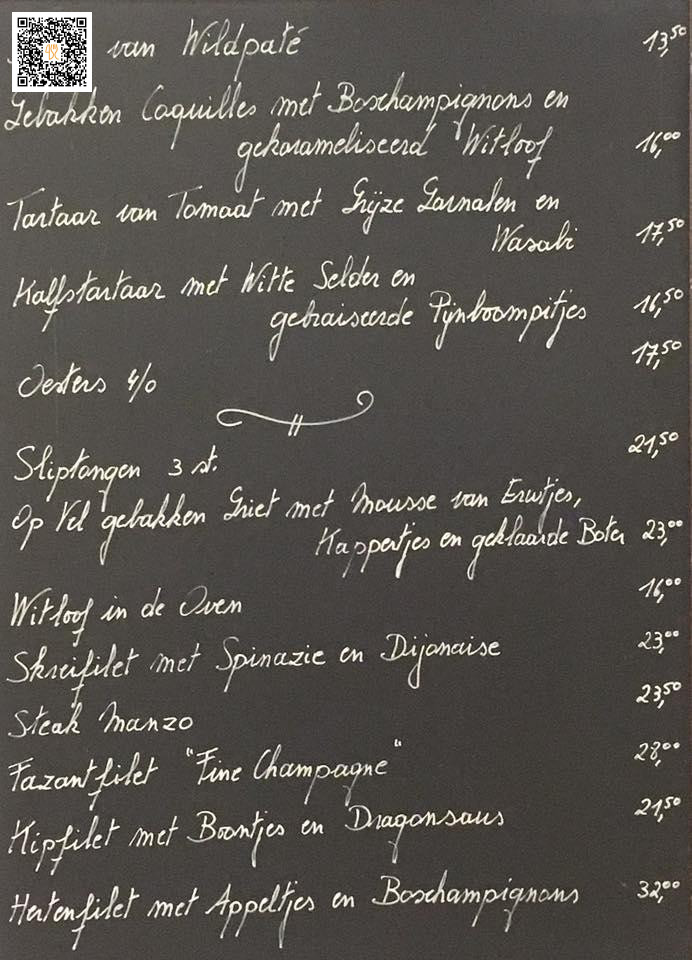 van Wildpaté 13,50
Gebakken Coquilles met Boschampignons en
gekarameliseerd Witloof 16,00
Tartaar van Tomaat met Grijze Garnalen en
Wasabi 17,50
Kalfstartaar met Witte Selder en
gebraiseerde Pijnboompitjes 16,50
Oesters 4/0 17,50
Sliptongen 3 st. 21,50
Op Vel gebakken Griet met Mousse van Erwtjes,
Kappertjes en geklaarde Boter 23,00
Witloof in de Oven 16,00
Skreifilet met Spinazie en Dijonaise 23,00
Steak Manzo 23,50
Fazantfilet "Fine Champagne" 28,00
Kipfilet met Boontjes en Dragonsaus 21,50
Hertenfilet met Appeltjes en Boschampignons 32,00